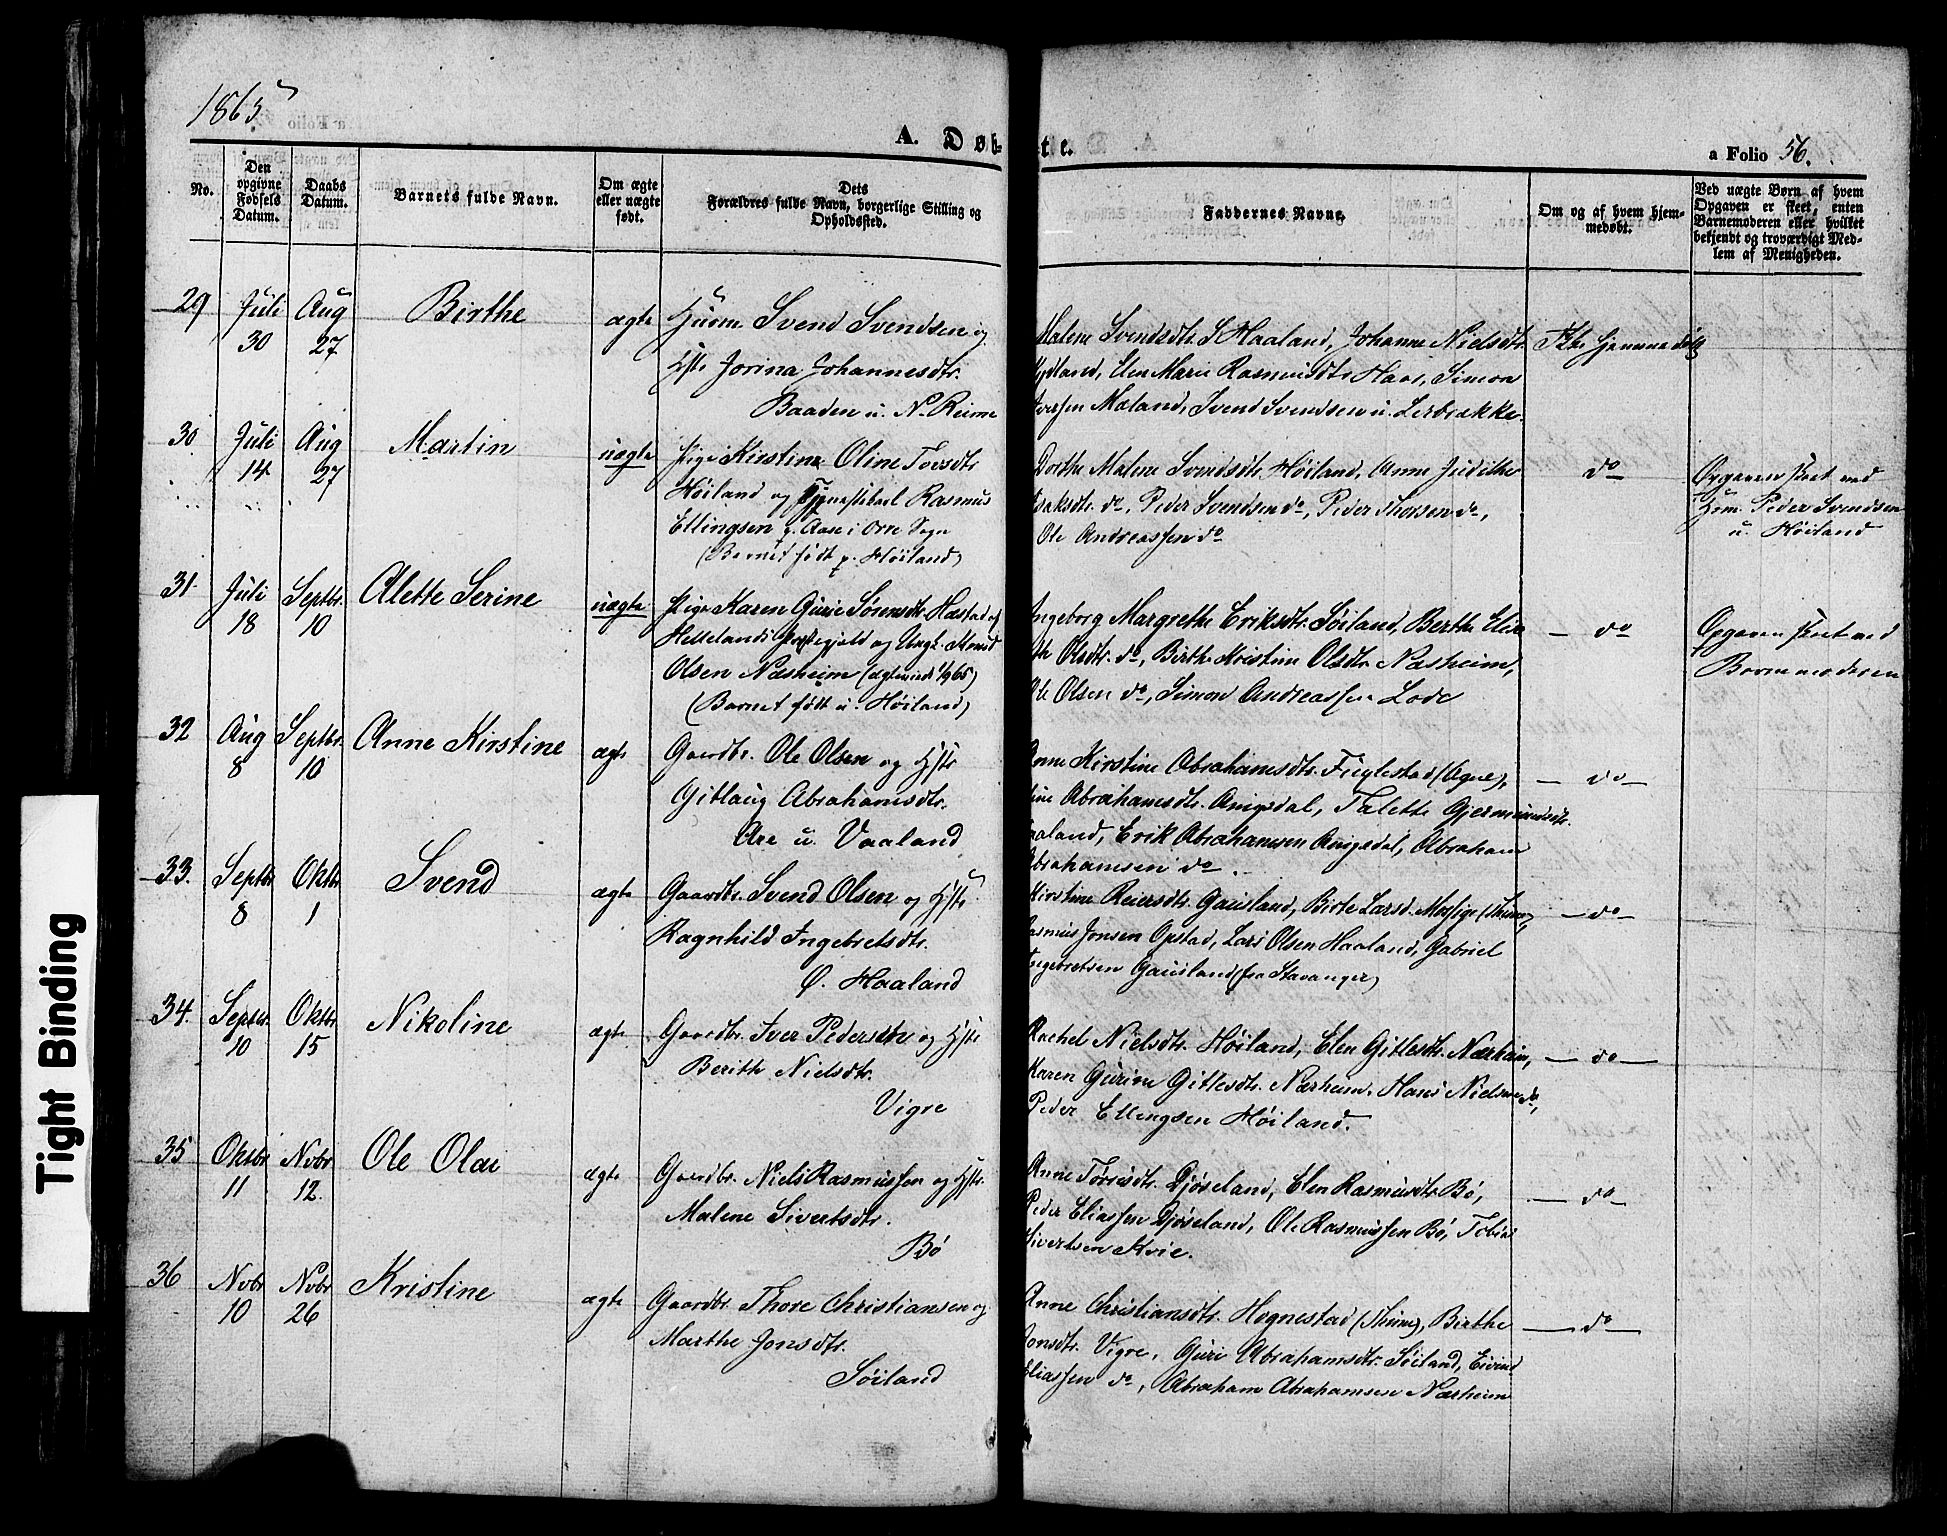 1865
A. Døb-
te.
a Folio 56.
No.
Den opgivne Fødsels Datum.
Daabs Datum.
Barnets fulde Navn.
Om ægte eller uægte født.
Dets Forældres fulde Navn, borgerlige Stilling og Opholdssted.
Faddernes Navne.
Om og af hvem hjemmedøbt.
Ved uægte Børn af hvem Opgaven er skeet, enten Barnemoderen eller hvilket bekjendt og troværdigt Medlem af Menigheden.
29 Juli 30 Aug 27 Birthe ægte
Husm Svend Svendsen og
Hst. Jorina Johannesdtr.
Baaden u. N. Reime
Malene Svendsdtr. S Haaland, Johanne Nielsdtr.
Elen Marie Rasmusdtr. Haar, Simon
Maland, Svend Svendsen u. Lerbrække.
Ikke hjemmedøbt
30. Juli 14 Aug 27 Martin uægte
Pige Kirstine Oline Torsdtr
Høiland og Rasmus
Ellingsen p. Aase i Orre Sogn
(Barnet født p. Høiland)
Dorthe Malene Svendsdtr. Høiland, Anne Judithe
Isaksdtr. do, Peder Svendsen do, Peder Thorsen do,
Ole Andreassen do
do
Opgaven skeet ved
Hm. Peder Svendsen
u. Høiland
31. Juli 18 Septbr. 10 Alette Serine uægte
Pige Karen Gurie Sørensdtr. Hæstad af
Hetlands Præstegjeld og Ungk.
Olsen Næsheim
(Barnet født u. Høiland)
Ingeborg Margrethe Eriksdtr. Søiland, Berthe Elisa
beth Olsdtr. do, Birthe Kristine Olsdtr. Næsheim,
Ole Olsen do, Simon Andreassen Lode
— do
Opgaven skeet ved
Barnemoderen
32 Aug 8 Septbr. 10 Anne Kirstine ægte
Gaardbr. Ole Olsen og Hst.
Gitlaug Abrahamsdtr.
Are u. Vaaland
Anne Kirstine Abrahamsdtr. Fuglestad (Ogne),
Abrahamsdtr. Anigsdal, Talette Gjermundsdtr.
Vaaland, Erik Abrahamsen Anigsdal, Abraham
Abrahamsen do.
— do —
33. Septbr 8 Oktbr 1 Svend ægte
Gaardbr. Svend Olsen og Hst.
Ragnhild Ingebretsdtr.
Ø. Haaland
Kirstine Reiersdtr. Gausland, Birte Larsd. Mossige (Thime),
Rasmus Jonsen Opstad, Lars Olsen Haaland, Gabriel
Ingebretsen Gausland (fra Stavanger)
— do —
34. Septbr. 10 Oktbr. 15 Nikoline ægte
Gaardbr. Iver Pedersen og Hst.
Berithe Nielsdtr.
Vigre
Rachel Nielsdtr. Høiland, Elen Gitlesdtr. Nærheim,
Karen Gurine Gitlesdtr. Nærheim, Hans Nielsen do,
Peder Ellingsen Høiland.
— do —
35 Oktbr 11 Novbr 12. Ole Olai ægte
Gaardbr. Niels Rasmussen og Hst.
Malene Sivertsdtr.
Bø
Anne Tørresdtr. Djøseland, Elen Rasmusdtr. Bø,
Peder Eliassen Djøseland, Ole Rasmussen Bø, Tobias
Sivertsen Kvie.
— do
36 Novbr 10 Novbr 26 Kristine ægte
Gaardbr. Thore Christiansen og
Marthe Jonsdtr.
Søiland
Anne Christiansdtr. Hognestad (Thime), Birthe
Jonsdtr. Vigre, Guri Abrahamsdtr. Søiland, Eivind
Eliassen do, Abraham Abrahamsen Nærheim
— do —
Tight Binding